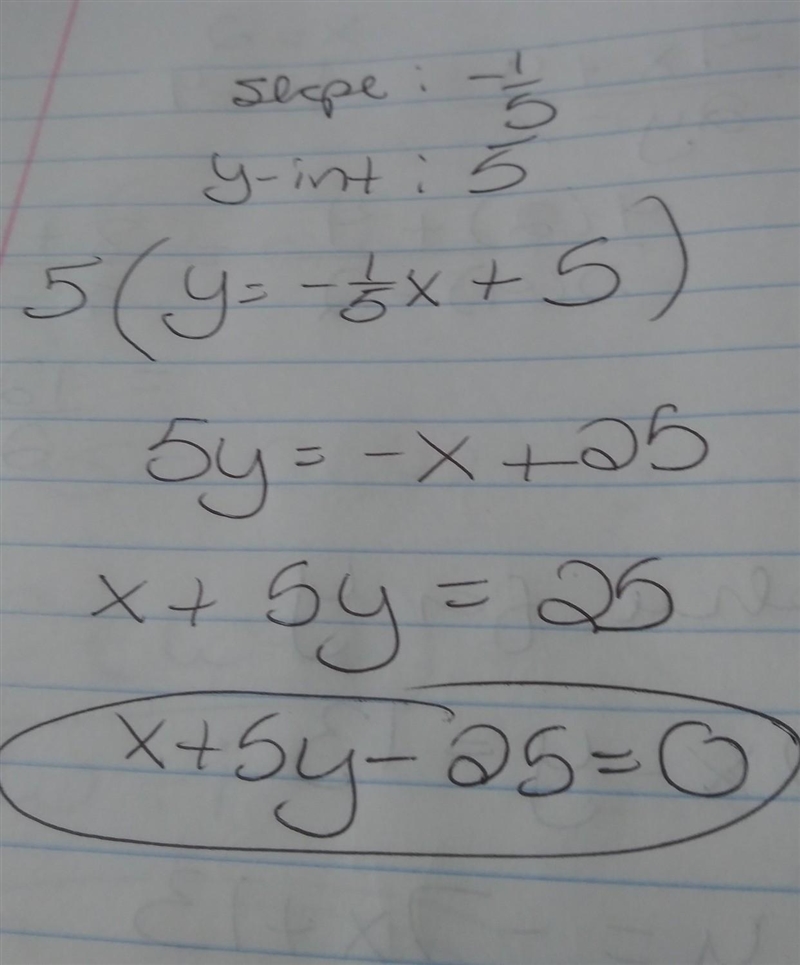 slope: -1/5
y-int: 5
5(y = -1/5x + 5)
5y = -x + 25
x + 5y = 25
x + 5y - 25 = 0